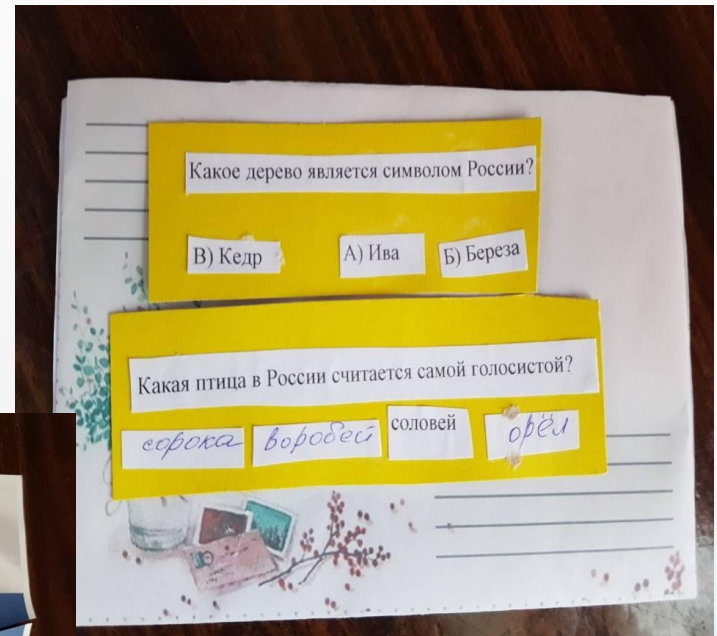 Какое дерево является символом России?
В) Кедр А) Ива Б) Береза
Какая птица в России считается самой голосистой?
сорока воробей соловей орёл